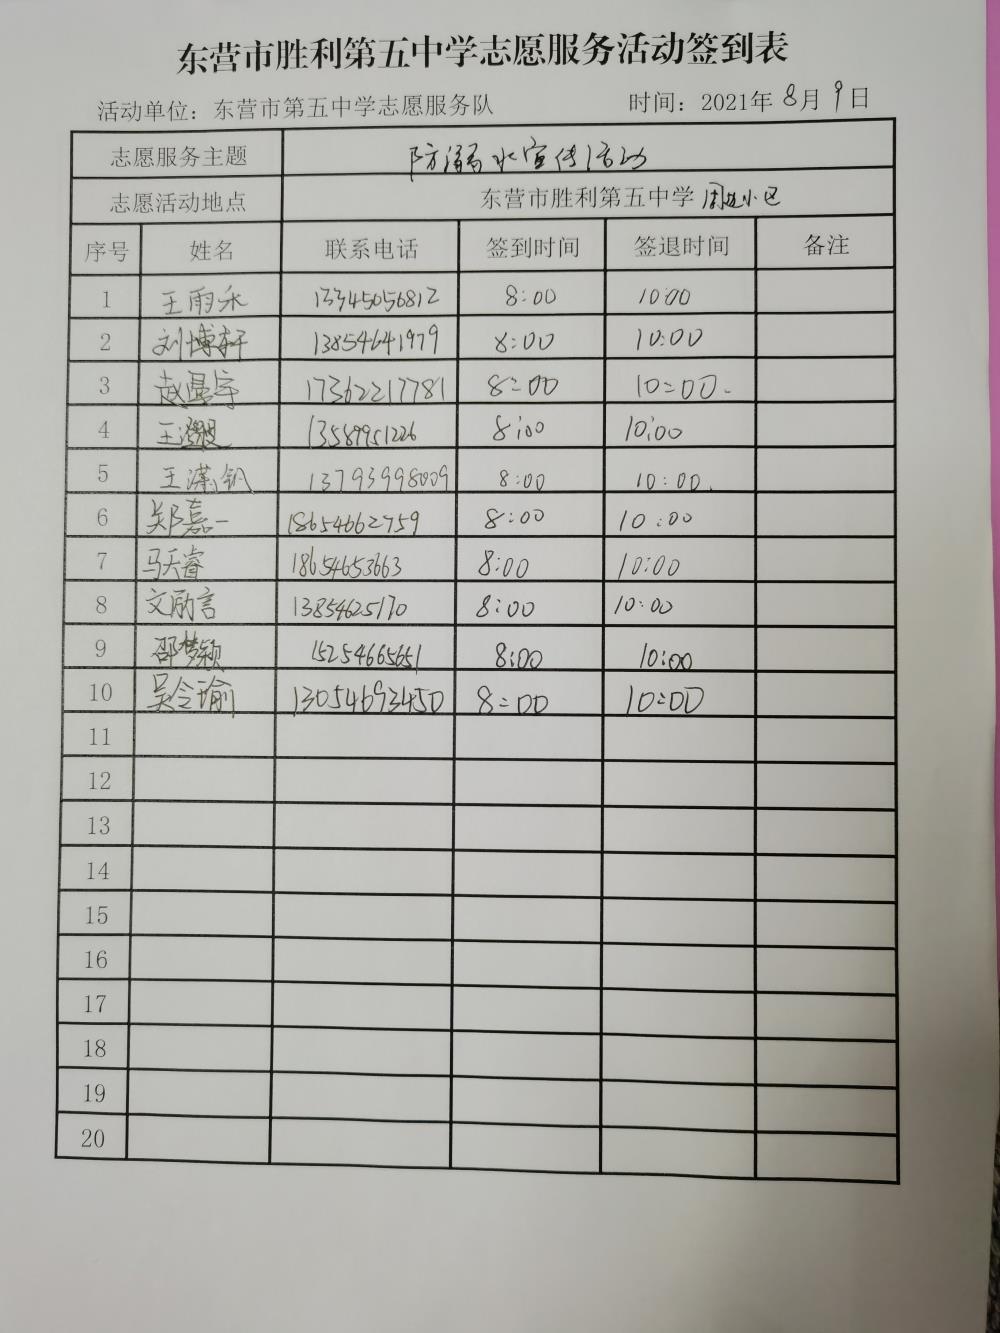 东营市胜利第五中学志愿服务活动签到表
活动单位：东营市第五中学志愿服务队 时间：2021年 8月 9日
志愿服务主题 防溺水宣传活动
志愿活动地点 东营市胜利第五中学周边小区
序号 姓名 联系电话 签到时间 签退时间 备注
1 王雨禾 13345056812 8:00 10:00
2 刘博轩 13854641979 8:00 10:00
3 赵晨宇 17362217781 8:00 10:00
4 王 13589951226 8:00 10:00
5 王潇钒 13793998009 8:00 10:00
6 郑嘉一 18654662759 8:00 10:00
7 马天睿 18654653663 8:00 10:00
8 文励言 13854625170 8:00 10:00
9 邵梦颖 15254665651 8:00 10:00
10 吴令瑜 13054693450 8:00 10:00
11
12
13
14
15
16
17
18
19
20